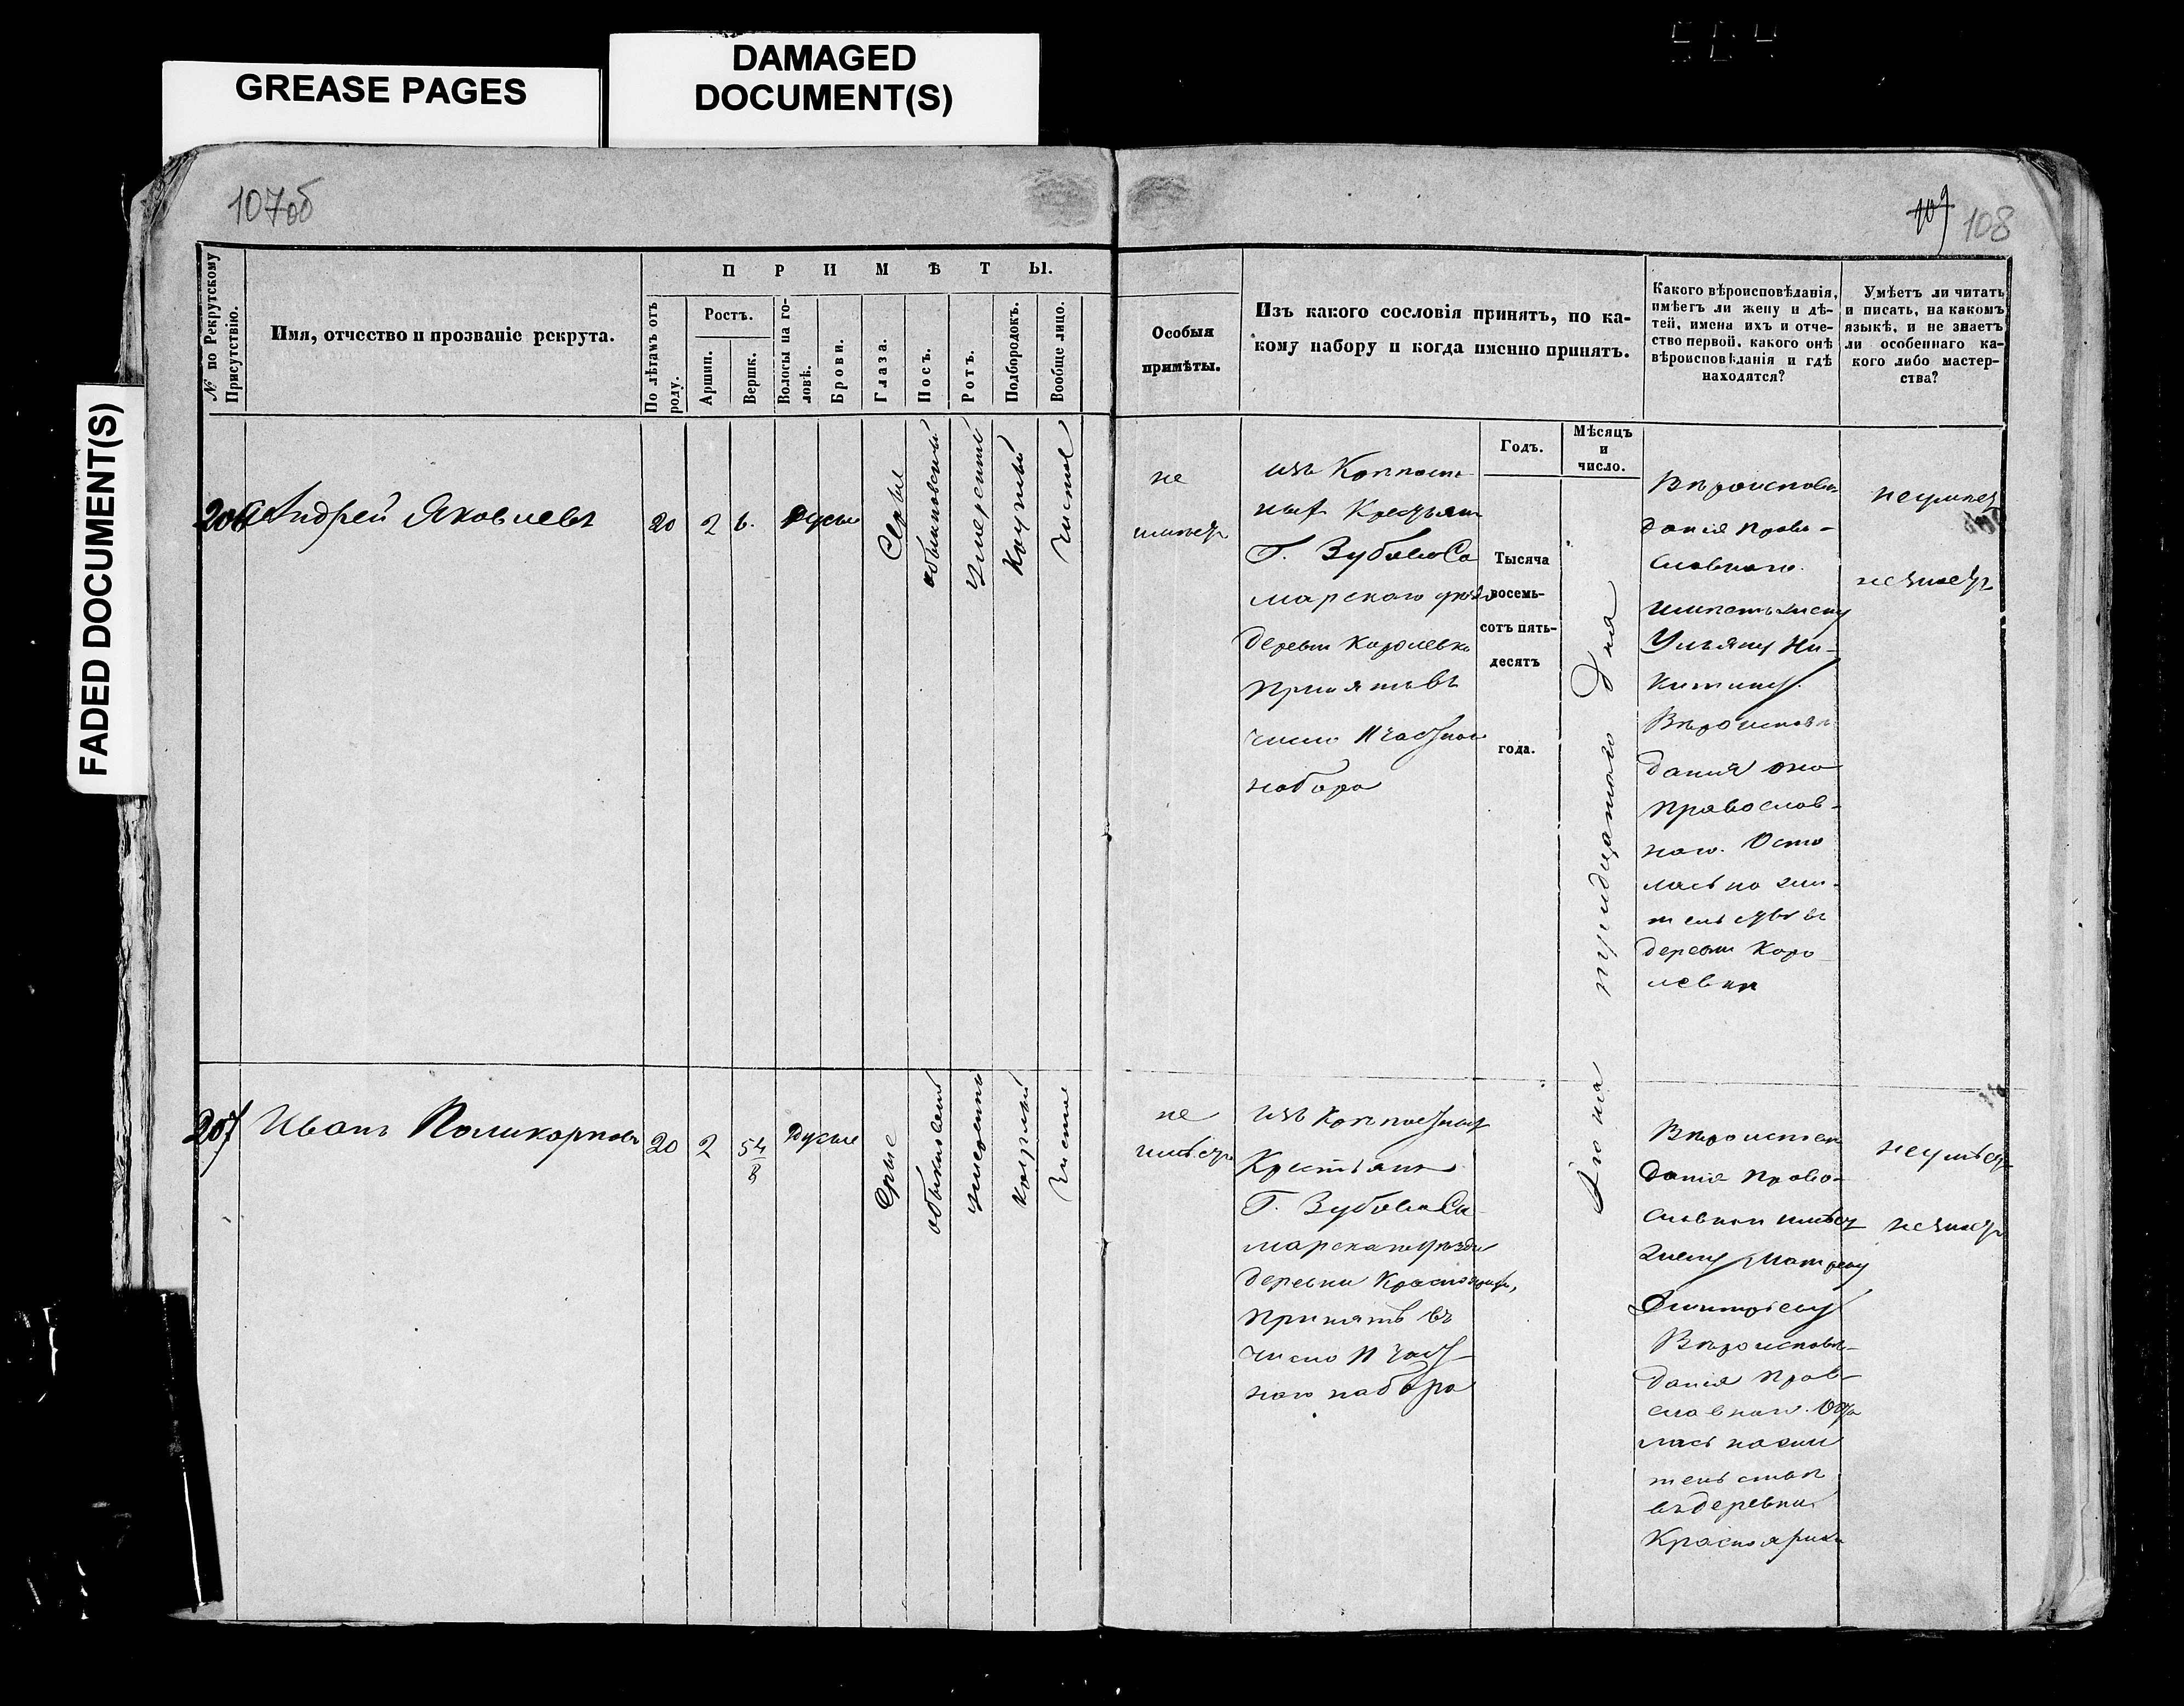 GREASE PAGES
DAMAGED
DOCUMENT(S)
FADED DOCUMENT(S)
107об
109 108
№ по Рекрутскому Присутствію.
Имя, отчество и прозваніе рекрута.
ПРИМѢТЫ.
По лѣтамъ отъ роду.
Ростъ.
Аршин.
Вершк.
Волосы на головѣ.
Брови.
Глаза.
Носъ.
Ротъ.
Подбородокъ.
Вообще лицо.
Особыя
примѣты.
Изъ какого сословія принятъ, по ка-
кому набору и когда именно принятъ.
Какого вѣроисповѣданія,
имѣетъ ли жену и дѣ-
тей, имена ихъ и отче-
ство первой, какого онѣ
вѣроисповѣданія и гдѣ
находятся?
Умѣетъ ли читать
и писать, на какомъ
языкѣ, и не знаетъ
ли особеннаго ка-
кого либо мастер-
ства?
Годъ.
Мѣсяцъ
и
число.
206
Андрей Яковлевъ
20
2
6.
Русые
Серые
обыкновенный
Умеренный
Круглый
Чистое
не
имѣетъ
изъ
Крестьян
Г. Зубова Са
марского уѣзда
деревни Королевки
Принятъ въ
число частнаго
набора
Тысяча
восемь-
сотъ пять-
десятъ
года.
Іюня тридцатаго дня
Вѣроисповѣ
данія Право-
славнаго.
имѣетъ жену
Ульяну Ни-
китину
Вѣроисповѣ
данія она
православ-
наго. Оста
лась на жи-
тельствѣ въ
деревни Коро
левки
неумѣетъ
незнаетъ
207
Иванъ Поликарповъ
20
2
5 4/8
Русые
Серые
обыкновенный
умеренный
Круглый
Чистое
не
имѣетъ
изъ
Крестьянъ
Г. Зубова Са
марского уѣзда
деревни Красноярики,
Принятъ въ
число част
наго набора
Вѣроисповѣ
данія Право-
славнаго имѣетъ
жену Матрену
Дмитріеву
Вѣроисповѣ-
данія Прав-
славнаго. Оста
лась на жи
тельствѣ
въ деревни
Красноярики
неумѣетъ
незнаетъ